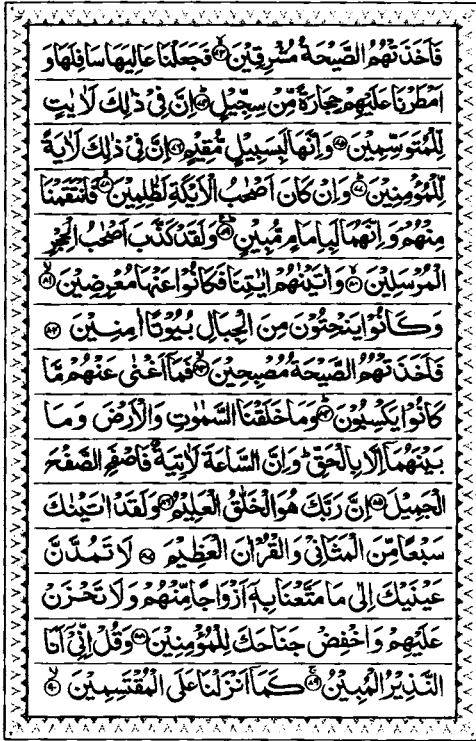 فَاَخَذَتْهُمُ الصَّيْحَةُ مُشْرِقِيْنَ ﴿۷۳﴾ فَجَعَلْنَا عَالِيَهَا سَافِلَهَا وَ
اَمْطَرْنَا عَلَيْهِمْ حِجَارَةً مِّنْ سِجِّيْلٍ ﴿۷۴﴾ اِنَّ فِيْ ذٰلِكَ لَاٰيٰتٍ
لِّلْمُتَوَسِّمِيْنَ ﴿۷۵﴾ وَاِنَّهَا لَبِسَبِيْلٍ مُّقِيْمٍ ﴿۷۶﴾ اِنَّ فِيْ ذٰلِكَ لَاٰيَةً
لِّلْمُؤْمِنِيْنَ ﴿۷۷﴾ وَاِنْ كَانَ اَصْحٰبُ الْاَيْكَةِ لَظٰلِمِيْنَ ﴿۷۸﴾ فَانْتَقَمْنَا
مِنْهُمْ وَاِنَّهُمَا لَبِاِمَامٍ مُّبِيْنٍ ﴿۷۹﴾ وَلَقَدْ كَذَّبَ اَصْحٰبُ الْحِجْرِ
الْمُرْسَلِيْنَ ﴿۸۰﴾ وَاٰتَيْنٰهُمْ اٰيٰتِنَا فَكَانُوْا عَنْهَا مُعْرِضِيْنَ ﴿۸۱﴾
وَكَانُوْا يَنْحِتُوْنَ مِنَ الْجِبَالِ بُيُوْتًا اٰمِنِيْنَ ﴿۸۲﴾
فَاَخَذَتْهُمُ الصَّيْحَةُ مُصْبِحِيْنَ ﴿۸۳﴾ فَمَآ اَغْنٰى عَنْهُمْ مَّا
كَانُوْا يَكْسِبُوْنَ ﴿۸۴﴾ وَمَا خَلَقْنَا السَّمٰوٰتِ وَالْاَرْضَ وَمَا
بَيْنَهُمَآ اِلَّا بِالْحَقِّ ؕ وَاِنَّ السَّاعَةَ لَاٰتِيَةٌ فَاصْفَحِ الصَّفْحَ
الْجَمِيْلَ ﴿۸۵﴾ اِنَّ رَبَّكَ هُوَ الْخَلّٰقُ الْعَلِيْمُ ﴿۸۶﴾ وَلَقَدْ اٰتَيْنٰكَ
سَبْعًا مِّنَ الْمَثَانِيْ وَالْقُرْاٰنَ الْعَظِيْمَ ﴿۸۷﴾ لَا تَمُدَّنَّ
عَيْنَيْكَ اِلٰى مَا مَتَّعْنَا بِهٖٓ اَزْوَاجًا مِّنْهُمْ وَلَا تَحْزَنْ
عَلَيْهِمْ وَاخْفِضْ جَنَاحَكَ لِلْمُؤْمِنِيْنَ ﴿۸۸﴾ وَقُلْ اِنِّيْٓ اَنَا
النَّذِيْرُ الْمُبِيْنُ ﴿۸۹﴾ كَمَآ اَنْزَلْنَا عَلَى الْمُقْتَسِمِيْنَ ﴿۹۰﴾